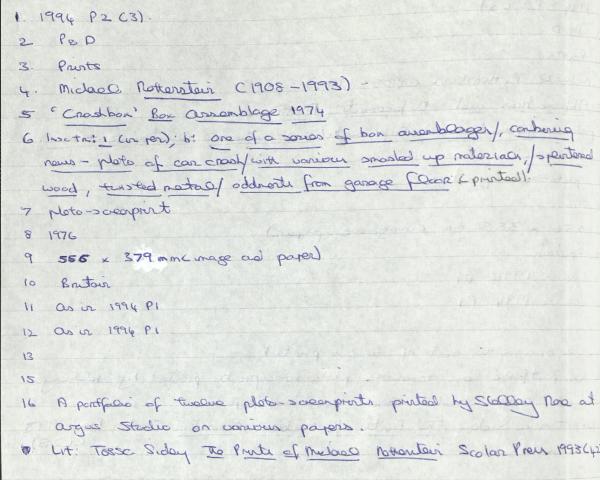 1. 1994 P2 (3).
2 P & D
3. Prints
4. Michael Rothenstein (1908-1993)
5 'Crashbox' Box assemblage 1974
6 Inscr: 1 (in pen); b: one of a series of box assemblages/, combining
news-photo of car crash/with various smashed up materials,/splintered
wood, twisted metal/ oddments from garage floor (printed).
7 photo-screenprint
8 1976
9 556 x 379 mm (image and paper)
10 Britain
11 as in 1994 P1
12 as in 1994 P1
13
15
16 A portfolio of twelve photo-screenprints printed by at
Argus Studio on various papers.
Lit: Tessa Sidey The Prints of Michael Rothenstein Scolar Press 1993